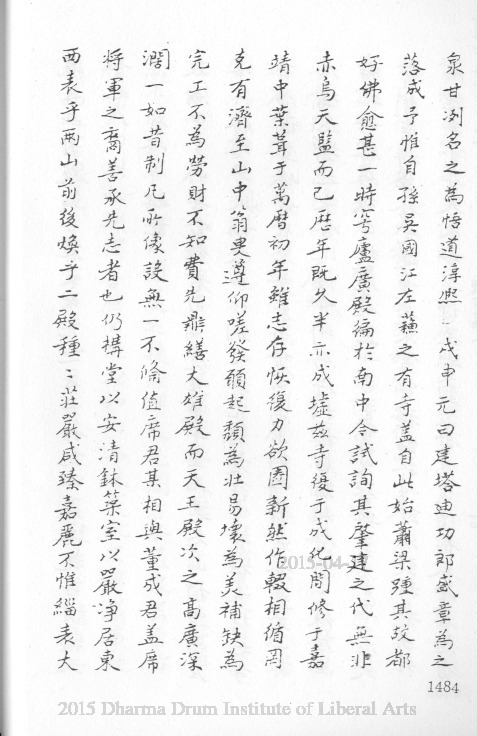 泉甘冽名之為悟道淳熙戊申元日建塔迪功郎盛章為之
落成予惟自孫吳國江左蘇之有寺盖自此始蕭梁踵其故都
好佛愈甚一時穹廬廣殿徧於南中今試詢其肇建之代無非
赤烏天監而已歷年既久半亦成墟茲寺復于成化間修于嘉
靖中葉葺于萬曆初年雖志存恢復力欲圖新然作輟相循罔
克有濟至山中翁叟遵仰嗟發願起頹為壯易壞為美補缺為
完工不為勞財不知費先鼎繕大雄殿而天王殿次之高廣深
濶一如昔制凡所像設無一不修值席君某相與董成君盖席
將軍之裔善承先志者也仍構堂以安清鉢築室以嚴淨居東
西表乎兩山前後煥乎二殿種〻莊嚴咸臻嘉麗不惟緇表大
2015-04-
1484
2015 Dharma Drum Institute of Liberal Arts